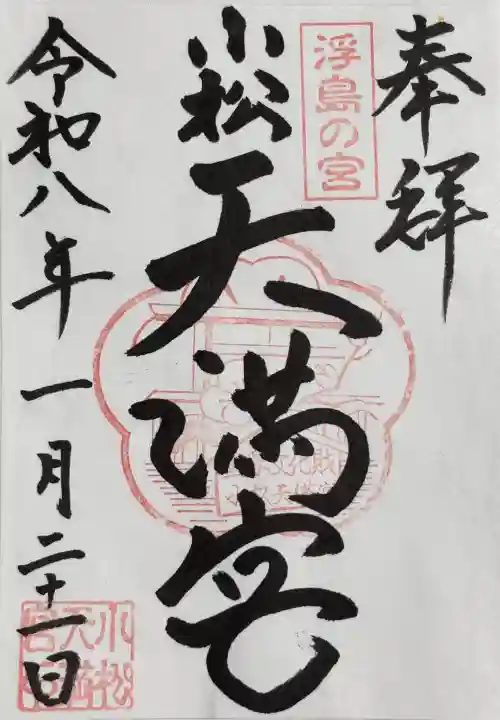 奉拝
浮島の宮
小松
天満宮
令和八年一月二十一日